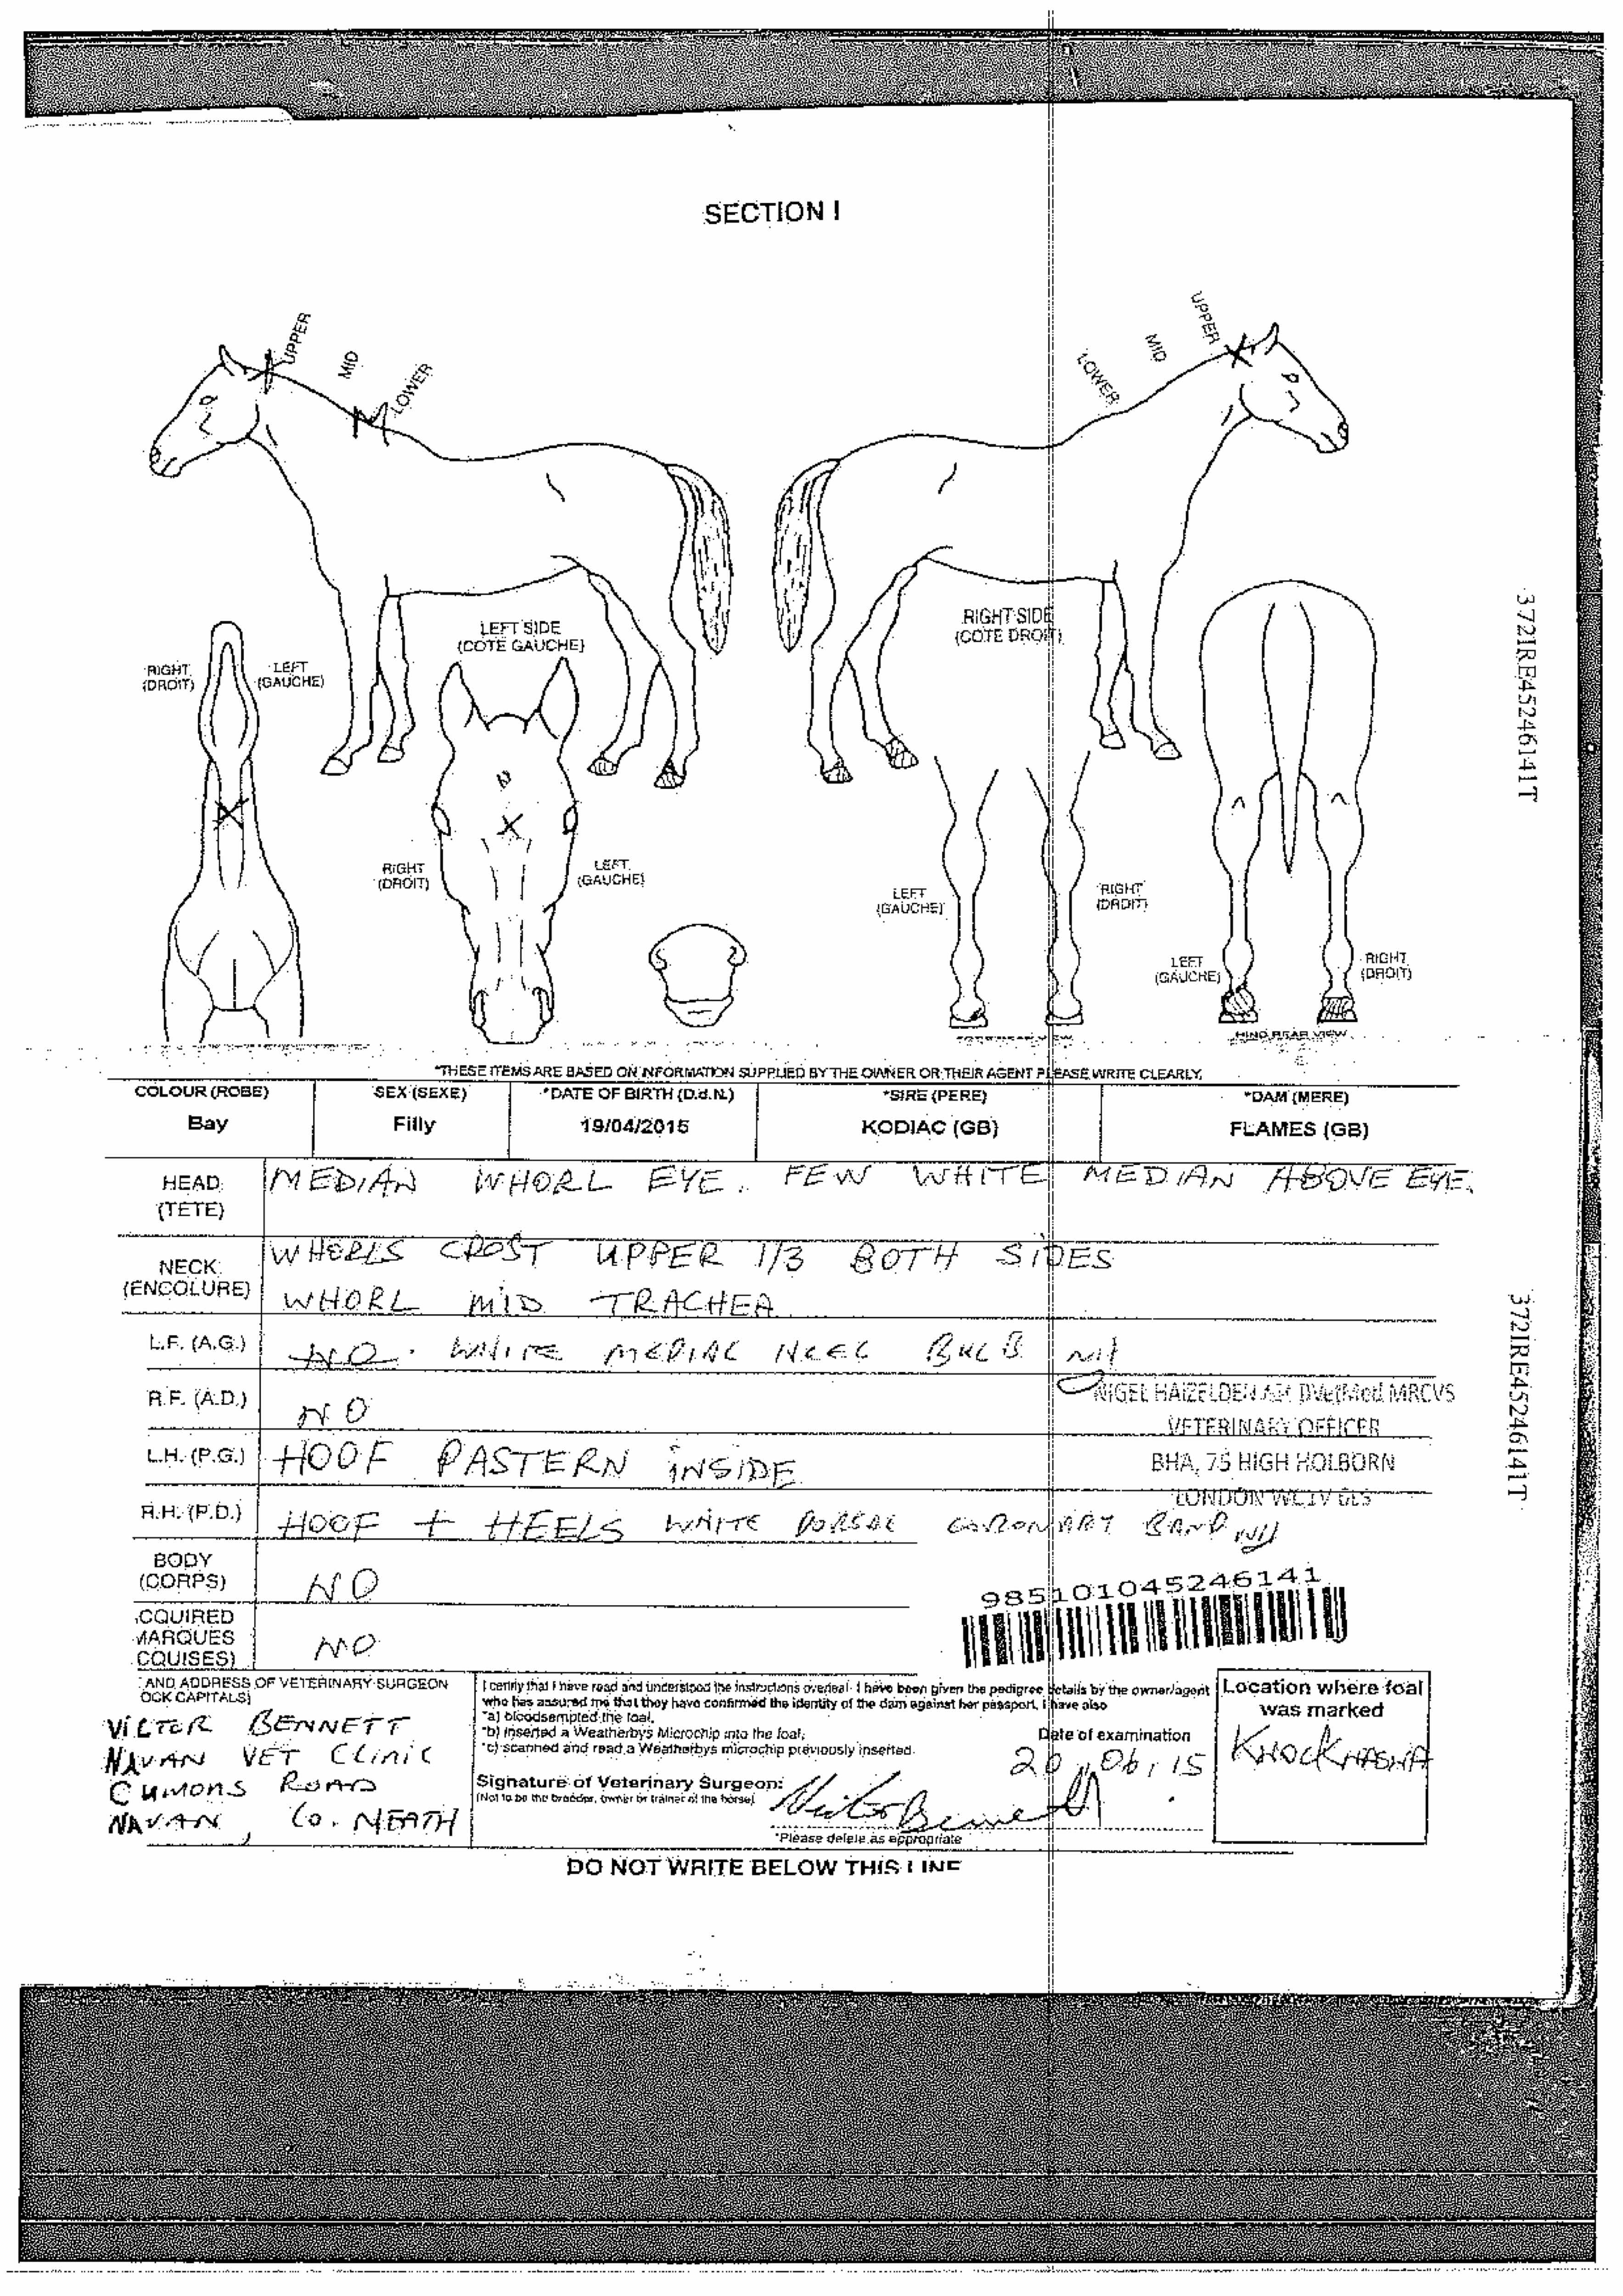 SECTION I
UPPER
MID
LOWER
M
UPPER
MID
LOWER
LEFT SIDE
(COTE GAUCHE)
RIGHT SIDE
(COTE DROIT)
RIGHT
(DROIT)
LEFT
(GAUCHE)
RIGHT
(DROIT)
LEFT
(GAUCHE)
LEFT
(GAUCHE)
RIGHT
(DROIT)
LEFT
(GAUCHE)
RIGHT
(DROIT)
HIND REAR VIEW
372IRE45246141T
*THESE ITEMS ARE BASED ON INFORMATION SUPPLIED BY THE OWNER OR THEIR AGENT PLEASE WRITE CLEARLY.
COLOUR (ROBE) SEX (SEXE) *DATE OF BIRTH (D.d.N.) *SIRE (PERE) *DAM (MERE)
Bay Filly 19/04/2015 KODIAC (GB) FLAMES (GB)
HEAD (TETE) MEDIAN WHORL EYE. FEW WHITE MEDIAN ABOVE EYE.
NECK (ENCOLURE) WHORLS CROST UPPER 1/3 BOTH SIDES
WHORL MID TRACHEA
L.F. (A.G.) NO. WHITE MEDIAL HEEL BULB NH
R.F. (A.D.) NO
NIGEL HAIZELDEN MA DVetMed MRCVS
VETERINARY OFFICER
BHA, 75 HIGH HOLBORN
LONDON WC1V 6LS
L.H. (P.G.) HOOF PASTERN INSIDE
R.H. (P.D.) HOOF + HEELS WHITE DORSAL CORONARY BAND NH
BODY (CORPS) NO
985101045246141
CQUIRED
MARQUES
CQUISES) NO
372IRE45246141T
AND ADDRESS OF VETERINARY SURGEON
OCK CAPITALS)
VICTOR BENNETT
NAVAN VET CLINIC
CUMONS ROAD
NAVAN, CO. MEATH
I certify that I have read and understood the instructions overleaf. I have been given the pedigree details by the owner/agent
who has assured me that they have confirmed the identity of the dam against her passport, I have also
*a) bloodsempted the foal,
*b) inserted a Weatherbys Microchip into the foal;
*c) scanned and read a Weatherbys microchip previously inserted.
Date of examination
20, 06, 15
Signature of Veterinary Surgeon:
(Not to be the breeder, owner or trainer of the horse)
Victor Bennett
*Please delete as appropriate
Location where foal
was marked
DO NOT WRITE BELOW THIS LINE